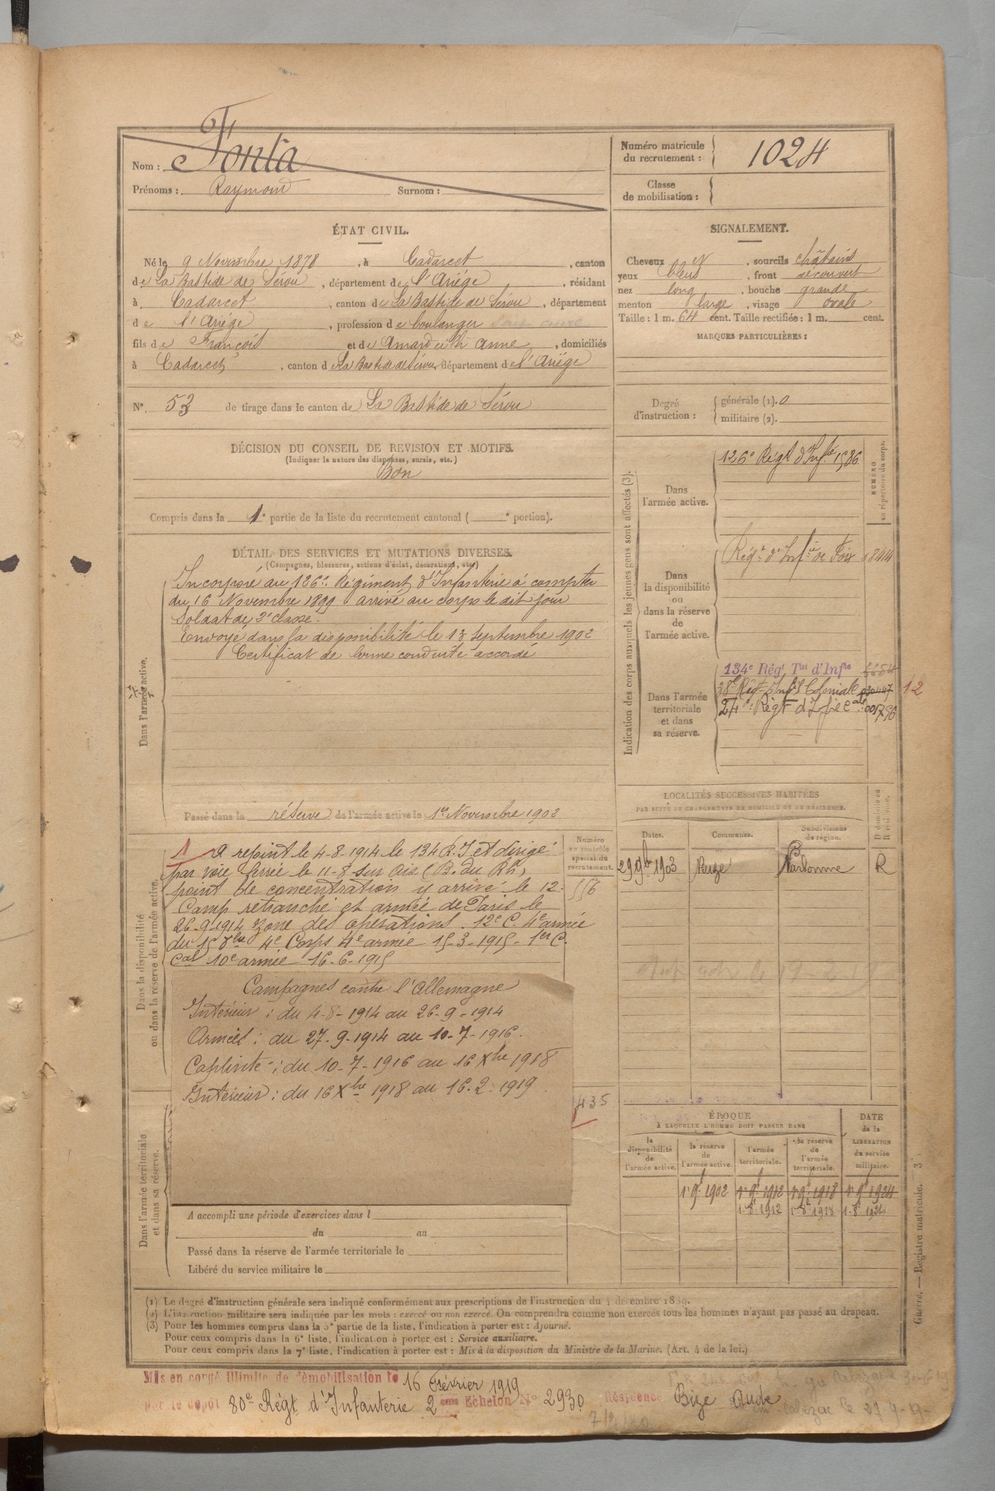 Nom : Fonta
Prénoms : Raymond Surnom :
Numéro matricule du recrutement : 1024
Classe de mobilisation :
ÉTAT CIVIL.
Né le 9 Novembre 1878, à Cadarcet, canton
de La Bastide de Sérou, département de l'Ariége, résidant
à Cadarcet, canton de La Bastide de Sérou, département
de l'Ariége, profession de boulanger
fils de François et de Anne, domiciliés
à Cadarcet, canton de La Bastide de Sérou, département de l'Ariége
N°. 53 de tirage dans le canton de La Bastide de Sérou
SIGNALEMENT.
Cheveux et, sourcils châtains
yeux bleus, front découvert
nez long, bouche grande
menton large, visage ovale
Taille : 1 m. 64 cent. Taille rectifiée : 1 m. cent.
MARQUES PARTICULIÈRES :
Degré d'instruction : générale (1). 0
militaire (2).
DÉCISION DU CONSEIL DE REVISION ET MOTIFS.
(Indiquer la nature des dispenses, sursis, etc.)
Bon
Compris dans la 1e partie de la liste du recrutement cantonal ( e portion).
DÉTAIL DES SERVICES ET MUTATIONS DIVERSES.
(Campagnes, blessures, actions d'éclat, décorations, etc.)
Dans l'armée active.
Incorporé au 126e Régiment d'Infanterie à compter
du 16 Novembre 1899 arrivé au corps le dit jour
Soldat de 2e classe.
Envoyé dans la disponibilité le 13 Septembre 1902
Certificat de bonne conduite accordé
Passé dans la réserve de l'armée active le 1er Novembre 1902
Indication des corps auxquels les jeunes gens sont affectés (3).
NUMÉRO au répertoire du corps.
Dans l'armée active.
126e Régt d'Infie 1586
Dans la disponibilité ou dans la réserve de l'armée active.
Régt d'Infie de Foix 1844
Dans l'armée territoriale et dans sa réserve.
134e Régt Tal d'Infie
38e Régt d'Infie Coloniale
24e Régt d'Infie Cale
12
LOCALITÉS SUCCESSIVES HABITÉES
PAR SUITE DE CHANGEMENT DE DOMICILE OU DE RÉSIDENCE.
Dates. Communes. Subdivisions de région.
29 9b 1903 Narbonne R
Dans la disponibilité ou dans la réserve de l'armée active.
Numéro au contrôle spécial du recrutement.
A rejoint le 4-8-1914 le 134 R.I et dirigé
par voie ferrée le 11-8 sur Aix (B. du Rh)
point de concentration y arrivé le 12.
Camp retranché et armée de Paris le
26-9-1914 zone des opérations. 12e C. 4e armée
4e Corps 4e armée 15-3-1915 - 1er C.
Cal 10e armée 16-6-1915
Campagnes contre l'Allemagne
Intérieur : du 4-8-1914 au 26-9-1914
Armées : du 27-9-1914 au 10-7-1916.
Captivité : du 10-7-1916 au 16 Xbre 1918
Intérieur : du 16 Xbre 1918 au 16-2-1919
435
Dans l'armée territoriale et dans sa réserve.
A accompli une période d'exercices dans l
du au
Passé dans la réserve de l'armée territoriale le
Libéré du service militaire le
ÉPOQUE
À LAQUELLE L'HOMME DOIT PASSER DANS
DATE de la LIBÉRATION du service militaire.
la disponibilité de l'armée active. la réserve de l'armée active. l'armée territoriale. la réserve de l'armée territoriale.
(1) Le degré d'instruction générale sera indiqué conformément aux prescriptions de l'instruction du 4 décembre 1889.
(2) L'instruction militaire sera indiquée par les mots : exercé ou non exercé. On comprendra comme non exercés tous les hommes n'ayant pas passé au drapeau.
(3) Pour les hommes compris dans la 5e partie de la liste, l'indication à porter est : Ajourné.
Pour ceux compris dans la 6e liste, l'indication à porter est : Service auxiliaire.
Pour ceux compris dans la 7e liste, l'indication à porter est : Mis à la disposition du Ministre de la Marine. (Art. 4 de la loi.)
Guerre. — Registre matricule. — 3
Mis en congé illimité de démobilisation le 16 Février 1919
par le dépôt 80e Régt d'Infanterie 2eme Echelon No 2930 Résidence Bize Aude